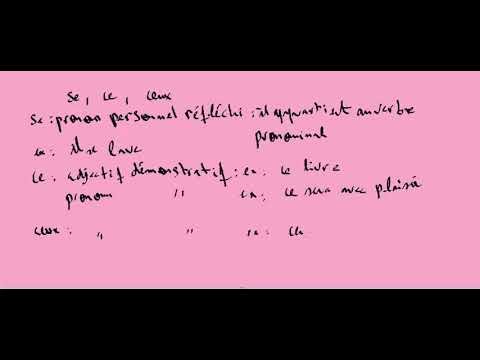 se, ce, ceux
se : pronom personnel réfléchi : il appartient au verbe
pronominal
ex : il se lave
ce : adjectif démonstratif : ex : ce livre
pronom " ex : ce sera avec plaisir
ceux : " " ex : ce